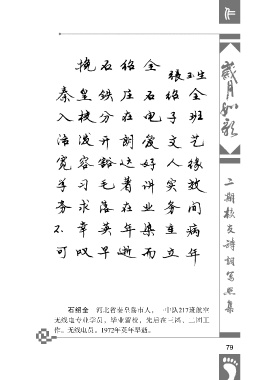 挽石绍全
张玉生
秦皇铁庄石绍全
入校分在电子班
活泼开朗爱文艺
宽容豁达好人缘
学习毛著讲实效
务求落在业务间
不幸英年染重病
可叹早逝而立年
石绍全 河北省秦皇岛市人,一中队217班航空
无线电专业学员,毕业留校,先后在三训、二训工
作。无线电员。1972年英年早逝。
岁月如歌
二期校友诗词写照集
79